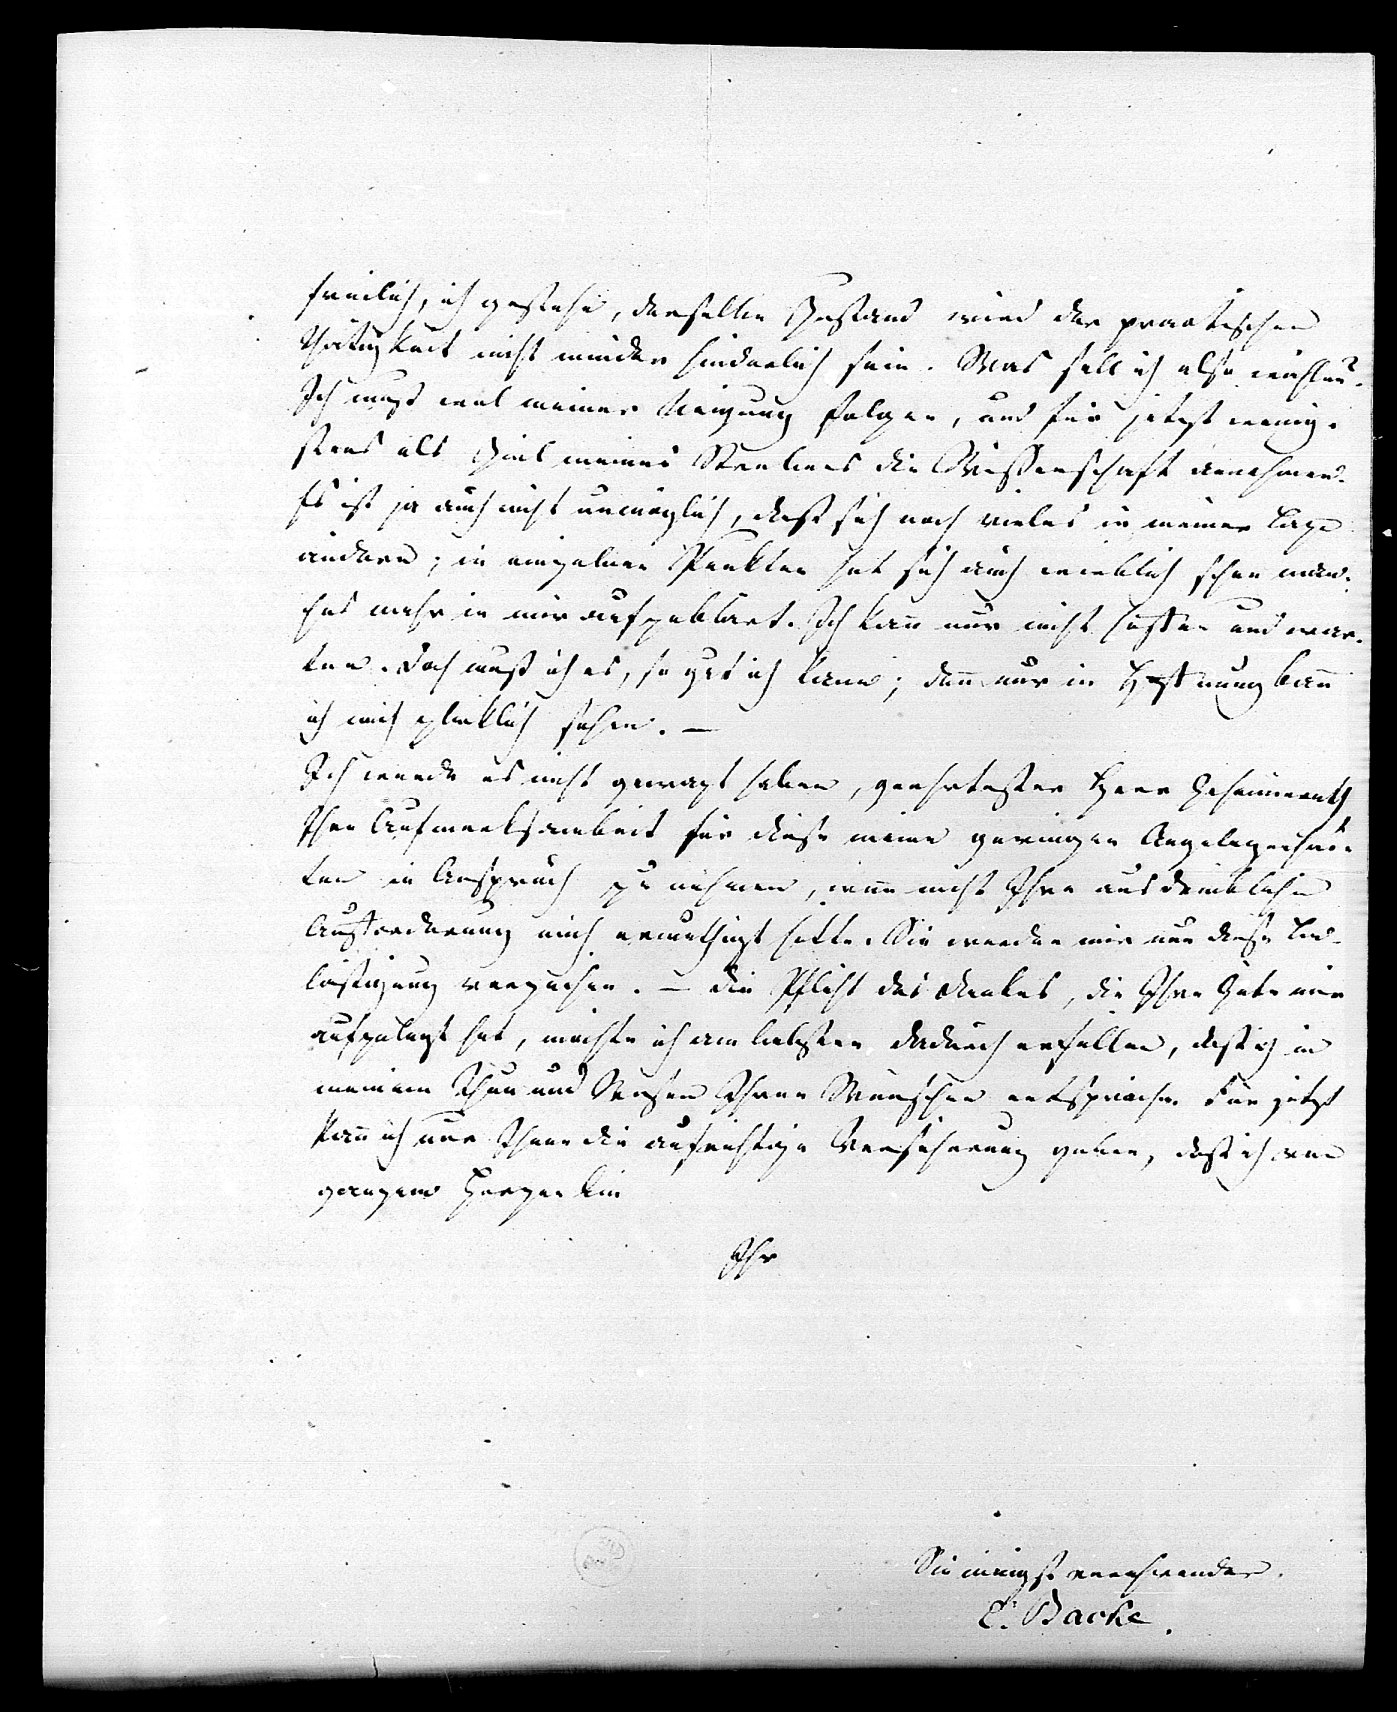 freilich, ich gestehe, derselbe Zustand wird der practischen
Thätigkeit nicht minder hinderlich sein. Was soll ich also wählen?
Ich muß wol meiner Neigung folgen, und für jetzt wenig-
stens als Ziel meines Strebens die Wissenschaft annehmen.
Es ist ja auch nicht unmöglich, daß sich noch vieles in meiner Lage
ändere; in einzelnen Punkten hat sich auch wirklich schon man-
ches mehr in mir aufgeklärt. Ich kann nur nicht hoffen und war-
ten. Doch muß ich es, so gut ich kann; denn nur in Hoffnung kann
ich mich glücklich sehen. —
Ich würde es nicht gewagt haben, geehrtester Herr Geheimerath
Ihre Aufmerksamkeit für diese meine geringen Angelegenhei-
ten in Anspruch zu nehmen, wenn nicht Ihre ausdrückliche
Aufforderung mich ermuthigt hätte. Sie werden mir nun diese Be-
lästigung verzeihen. — Die Pflicht des Dankes, die Ihre Güte mir
aufgelegt hat, möchte ich am liebsten dadurch erfüllen, daß ich in
meinem Thun und Wesen Ihren Wünschen entspräche. Für jetzt
kann ich nur Ihnen die aufrichtige Versicherung geben, daß ich von
ganzem Herzen bin
Ihr
Sie innigst verehrender
E. Backe.